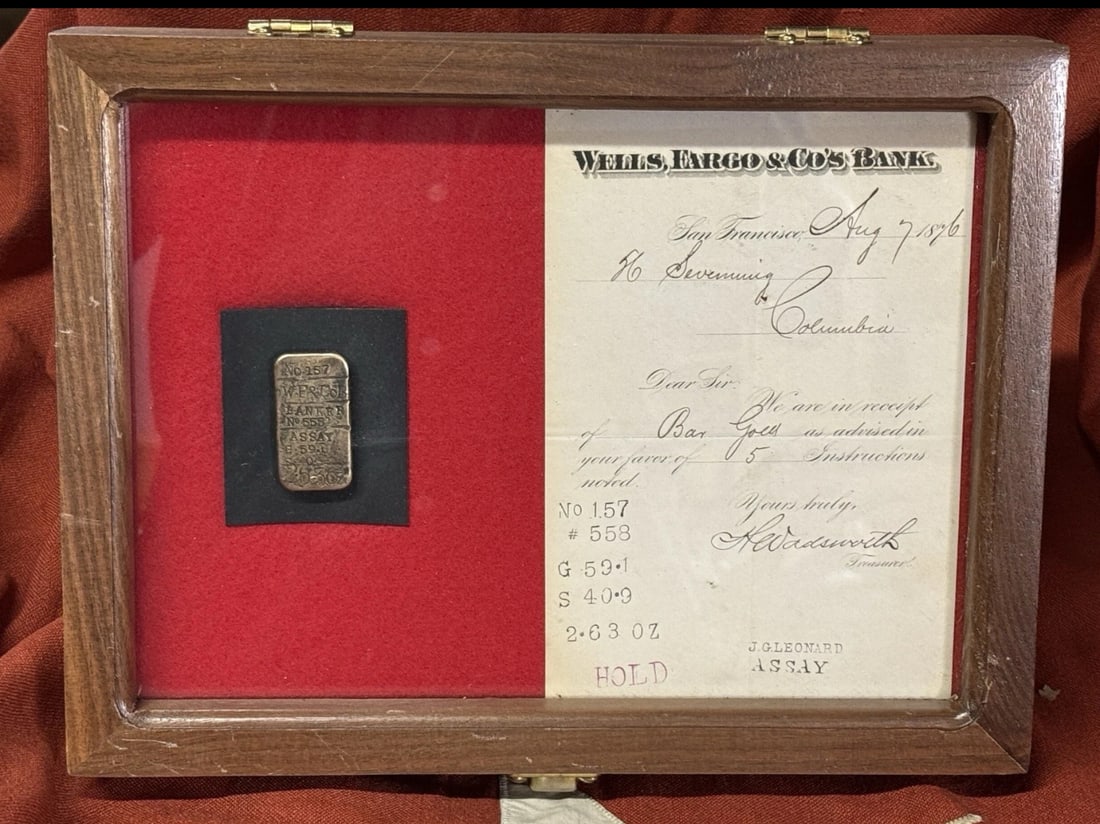 No 157
W.F.&Co's
BANKER
No 558
ASSAY
G 59.1
WELLS, FARGO & CO'S BANK.
San Francisco, Aug 7 1876
H
Columbia
Dear Sir:
We are in receipt
of Bar Gold as advised in
your favor of 5 Instructions
noted.
Yours truly,
HWadsworth
Treasurer.
No 157
# 558
G 59•1
S 40•9
2•63 OZ
HOLD
J.G.LEONARD
ASSAY